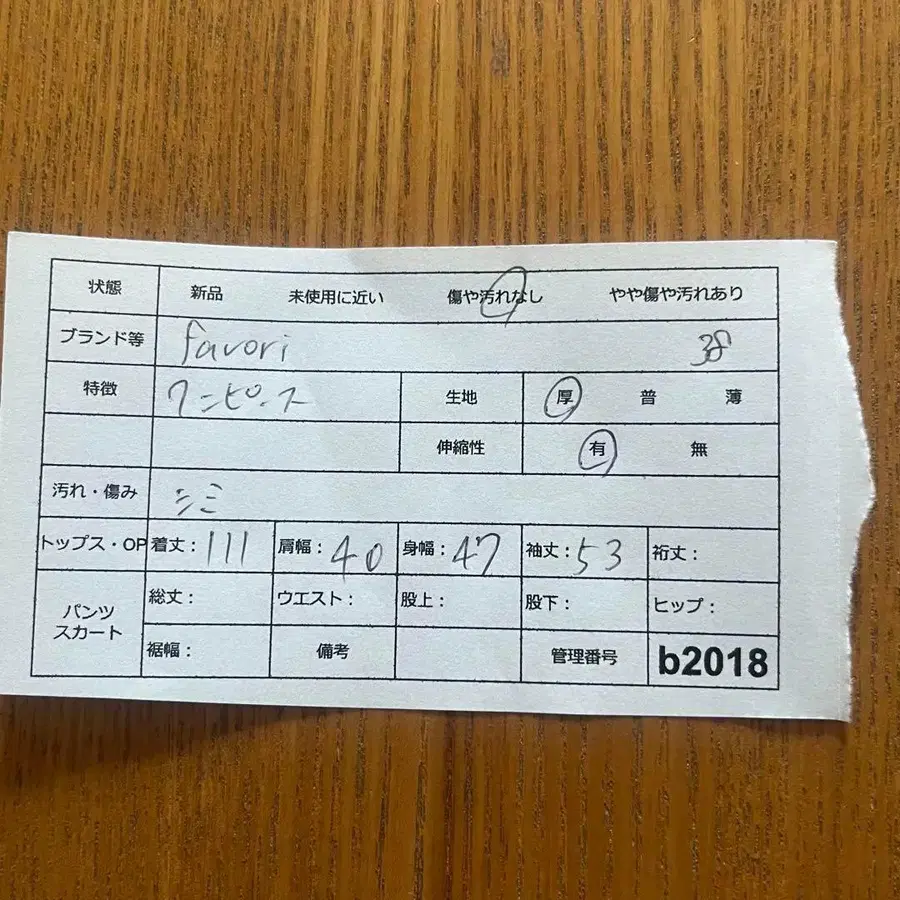 状態 新品 未使用に近い 傷や汚れなし やや傷や汚れあり
ブランド等 favori 38
特徴 ワンピース 生地 厚 普 薄
伸縮性 有 無
汚れ・傷み シミ
トップス・OP 着丈：111 肩幅：40 身幅：47 袖丈：53 裄丈：
パンツ スカート 総丈： ウエスト： 股上： 股下： ヒップ：
裾幅： 備考 管理番号 b2018